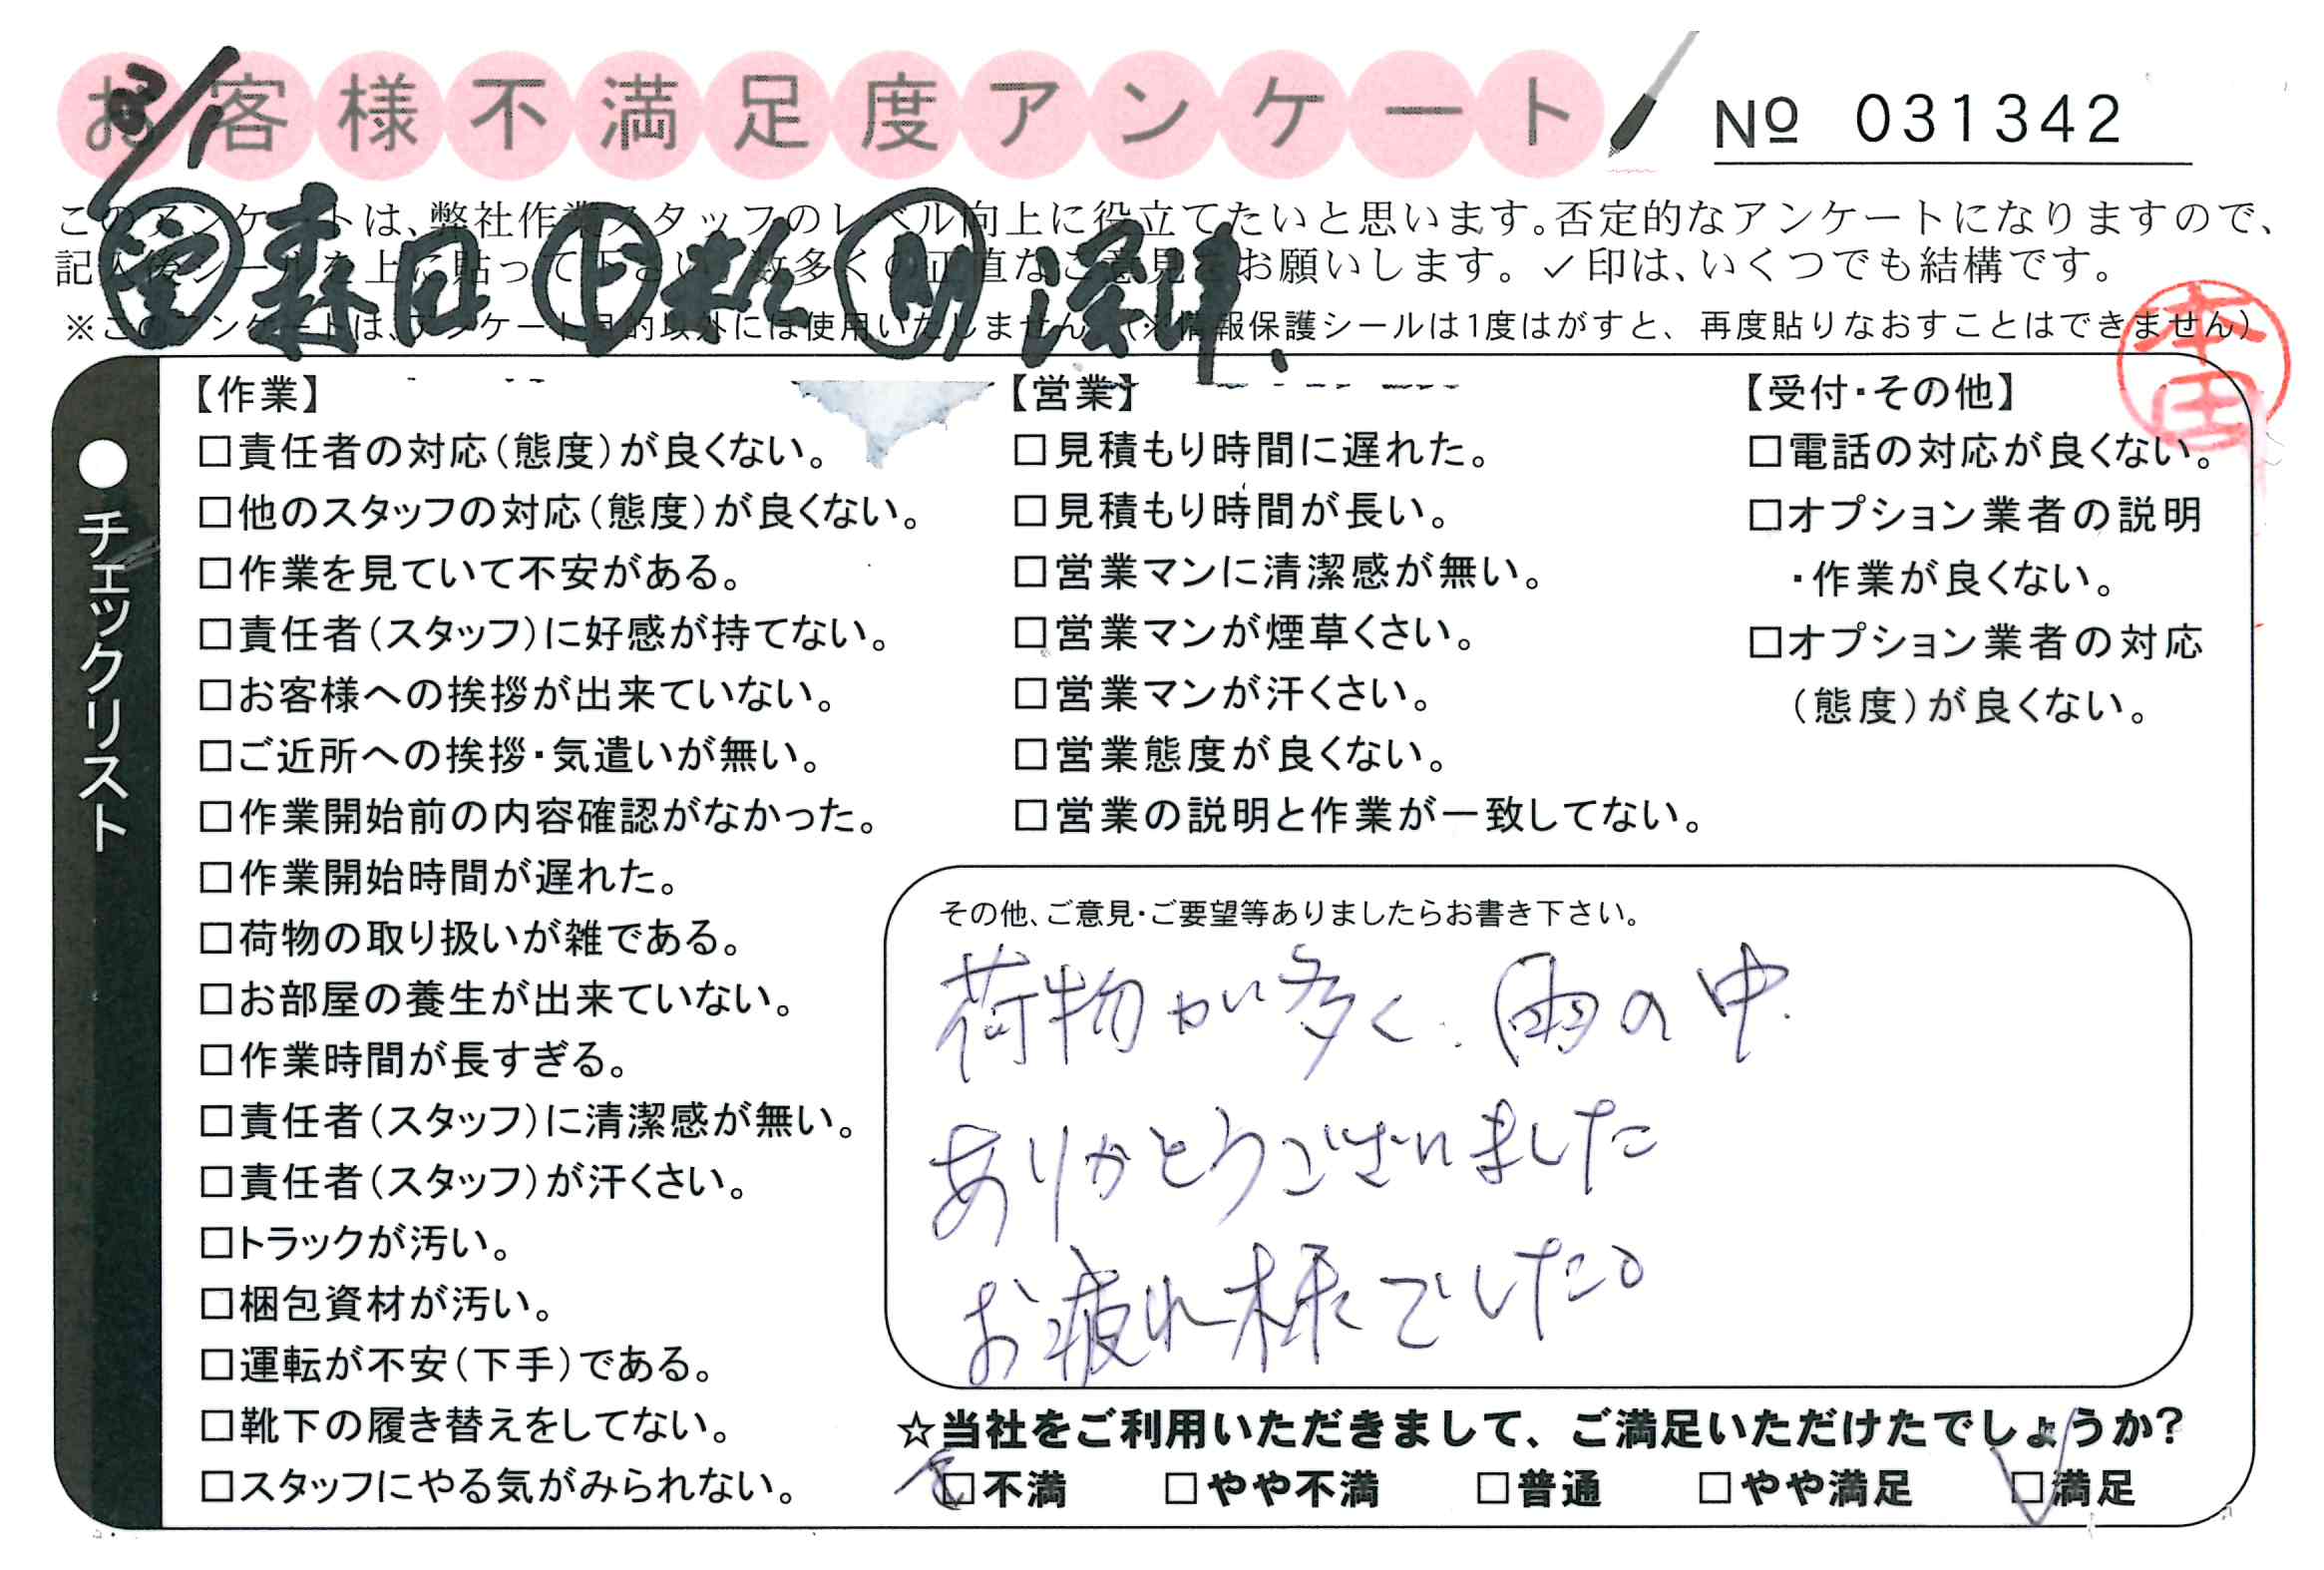 お客様不満足度アンケート
No 031342
このアンケートは、弊社作業スタッフのレベル向上に役立てたいと思います。否定的なアンケートになりますので、
記入後シールを上に貼って下さい。数多くの正直なご意見をお願いします。✓印は、いくつでも結構です。
※このアンケートは、アンケート目的以外には使用いたしません。(※情報保護シールは1度はがすと、再度貼りなおすことはできません)
本田
●チェックリスト
【作業】
□責任者の対応(態度)が良くない。
□他のスタッフの対応(態度)が良くない。
□作業を見ていて不安がある。
□責任者(スタッフ)に好感が持てない。
□お客様への挨拶が出来ていない。
□ご近所への挨拶・気遣いが無い。
□作業開始前の内容確認がなかった。
□作業開始時間が遅れた。
□荷物の取り扱いが雑である。
□お部屋の養生が出来ていない。
□作業時間が長すぎる。
□責任者(スタッフ)に清潔感が無い。
□責任者(スタッフ)が汗くさい。
□トラックが汚い。
□梱包資材が汚い。
□運転が不安(下手)である。
□靴下の履き替えをしてない。
□スタッフにやる気がみられない。
【営業】
□見積もり時間に遅れた。
□見積もり時間が長い。
□営業マンに清潔感が無い。
□営業マンが煙草くさい。
□営業マンが汗くさい。
□営業態度が良くない。
□営業の説明と作業が一致してない。
【受付・その他】
□電話の対応が良くない。
□オプション業者の説明
・作業が良くない。
□オプション業者の対応
(態度)が良くない。
その他、ご意見・ご要望等ありましたらお書き下さい。
荷物が多く、雨の中、
ありがとうございました
お疲れ様でした。
☆当社をご利用いただきまして、ご満足いただけたでしょうか?
□不満 □やや不満 □普通 □やや満足 □満足